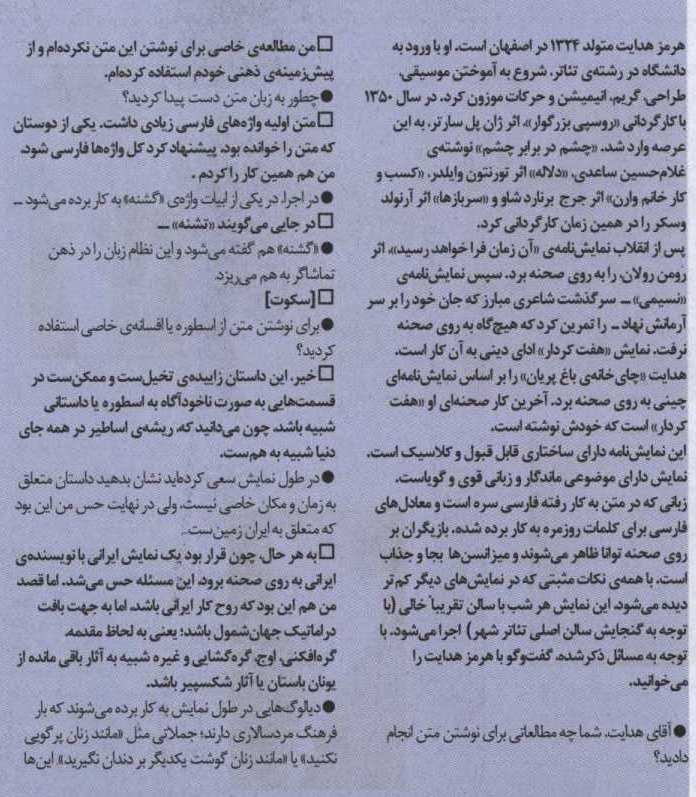 هرمز هدایت متولد ۱۳۲۴ در اصفهان است. او با ورود به
دانشگاه در رشته‌ی تئاتر، شروع به آموختن موسیقی،
طراحی، گریم، انیمیشن و حرکات موزون کرد. در سال ۱۳۵۰
با کارگردانی «روسپی بزرگوار»، اثر ژان پل سارتر، به این
عرصه وارد شد. «چشم در برابر چشم» نوشته‌ی
غلام‌حسین ساعدی، «دلاله» اثر تورنتون وایلدر، «کسب و
کار خانم وارن» اثر جرج برنارد شاو و «سربازها» اثر آرنولد
وسکر را در همین زمان کارگردانی کرد.
پس از انقلاب نمایش‌نامه‌ی «آن زمان فرا خواهد رسید»، اثر
رومن رولان، را به روی صحنه برد. سپس نمایش‌نامه‌ی
«نسیمی» ــ سرگذشت شاعری مبارز که جان خود را بر سر
آرمانش نهاد ــ را تمرین کرد که هیچ‌گاه به روی صحنه
نرفت. نمایش «هفت کردار» ادای دینی به آن کار است.
هدایت «چای‌خانه‌ی باغ پریان» را بر اساس نمایش‌نامه‌ای
چینی به روی صحنه برد. آخرین کار صحنه‌ای او «هفت
کردار» است که خودش نوشته است.
این نمایش‌نامه دارای ساختاری قابل قبول و کلاسیک است.
نمایش دارای موضوعی ماندگار و زبانی قوی و گویاست.
زبانی که در متن به کار رفته فارسی سره است و معادل‌های
فارسی برای کلمات روزمره به کار برده شده. بازیگران بر
روی صحنه توانا ظاهر می‌شوند و میزانسن‌ها بجا و جذاب
است. با همه‌ی نکات مثبتی که در نمایش‌های دیگر کم‌تر
دیده می‌شود، این نمایش هر شب با سالن تقریباً خالی (با
توجه به گنجایش سالن اصلی تئاتر شهر) اجرا می‌شود. با
توجه به مسائل ذکرشده، گفت‌وگو با هرمز هدایت را
می‌خوانید.
● آقای هدایت، شما چه مطالعاتی برای نوشتن متن انجام
دادید؟
□ من مطالعه‌ی خاصی برای نوشتن این متن نکرده‌ام و از
پیش‌زمینه‌ی ذهنی خودم استفاده کرده‌ام.
● چطور به زبان متن دست پیدا کردید؟
□ متن اولیه واژه‌های فارسی زیادی داشت. یکی از دوستان
که متن را خوانده بود، پیشنهاد کرد کل واژه‌ها فارسی شود.
من هم همین کار را کردم.
● در اجرا، در یکی از ابیات واژه‌ی «گشنه» به کار برده می‌شود ــ
□ در جایی می‌گویند «تشنه» ــ
● «گشنه» هم گفته می‌شود و این نظام زبان را در ذهن
تماشاگر به هم می‌ریزد.
□ [سکوت]
● برای نوشتن متن از اسطوره یا افسانه‌ی خاصی استفاده
کردید؟
□ خیر. این داستان زاییده‌ی تخیل‌ست و ممکن‌ست در
قسمت‌هایی به صورت ناخودآگاه به اسطوره یا داستانی
شبیه باشد. چون می‌دانید که، ریشه‌ی اساطیر در همه جای
دنیا شبیه به هم‌ست.
● در طول نمایش سعی کرده‌اید نشان بدهید داستان متعلق
به زمان و مکان خاصی نیست، ولی در نهایت حس من این بود
که متعلق به ایران زمین‌ست.
□ به هر حال، چون قرار بود یک نمایش ایرانی با نویسنده‌ی
ایرانی به روی صحنه برود، این مسئله حس می‌شد. اما قصد
من هم این بود که روح کار ایرانی باشد، اما به جهت بافت
دراماتیک جهان‌شمول باشد؛ یعنی به لحاظ مقدمه،
گره‌افکنی، اوج، گره‌گشایی و غیره شبیه به آثار باقی مانده از
یونان باستان یا آثار شکسپیر باشد.
● دیالوگ‌هایی در طول نمایش به کار برده می‌شوند که بار
فرهنگ مردسالاری دارند؛ جملاتی مثل «مانند زنان پرگویی
نکنید» یا «مانند زنان گوشت یکدیگر بر دندان نگیرید». این‌ها